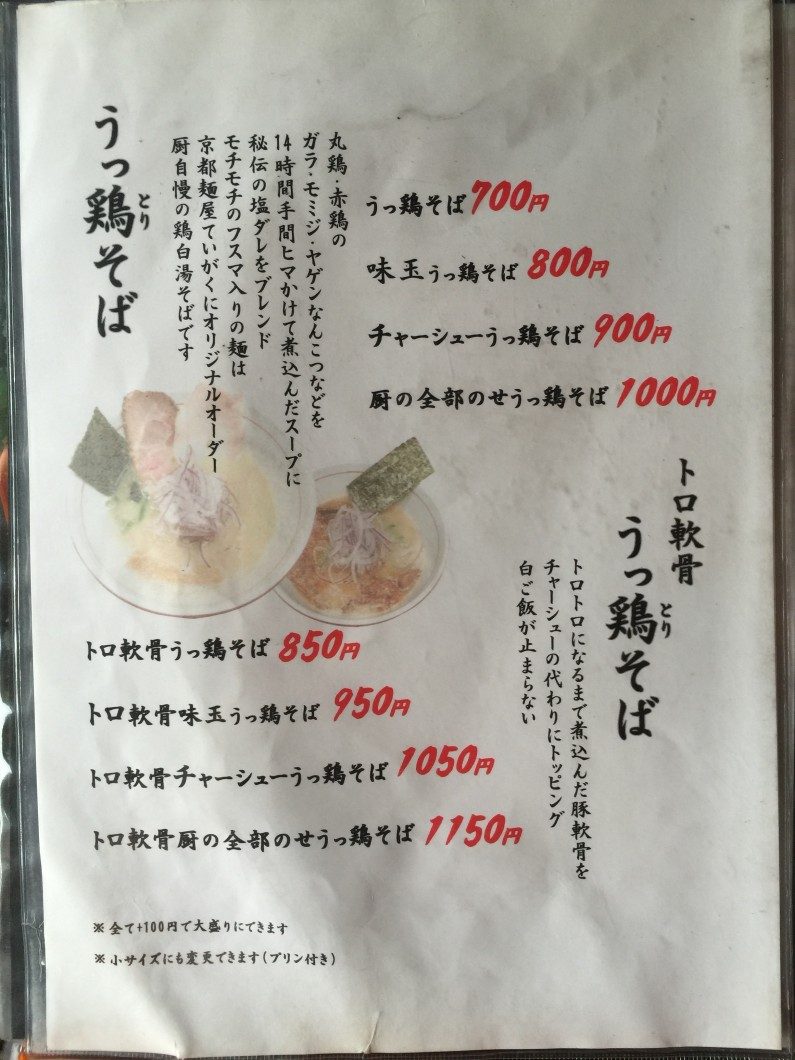 うっ鶏そば
とり
丸鶏・赤鶏の
ガラ・モミジ・ヤゲンなんこつなどを
14時間手間ヒマかけて煮込んだスープに
秘伝の塩ダレをブレンド
モチモチのフスマ入りの麺は
京都麺屋ていがくにオリジナルオーダー
厨自慢の鶏白湯そばです
うっ鶏そば700円
味玉うっ鶏そば800円
チャーシューうっ鶏そば900円
厨の全部のせうっ鶏そば1000円
トロ軟骨
うっ鶏そば
とり
トロトロになるまで煮込んだ豚軟骨を
チャーシューの代わりにトッピング
白ご飯が止まらない
トロ軟骨うっ鶏そば850円
トロ軟骨味玉うっ鶏そば950円
トロ軟骨チャーシューうっ鶏そば1050円
トロ軟骨厨の全部のせうっ鶏そば1150円
※全て+100円で大盛りにできます
※小サイズにも変更できます(プリン付き)